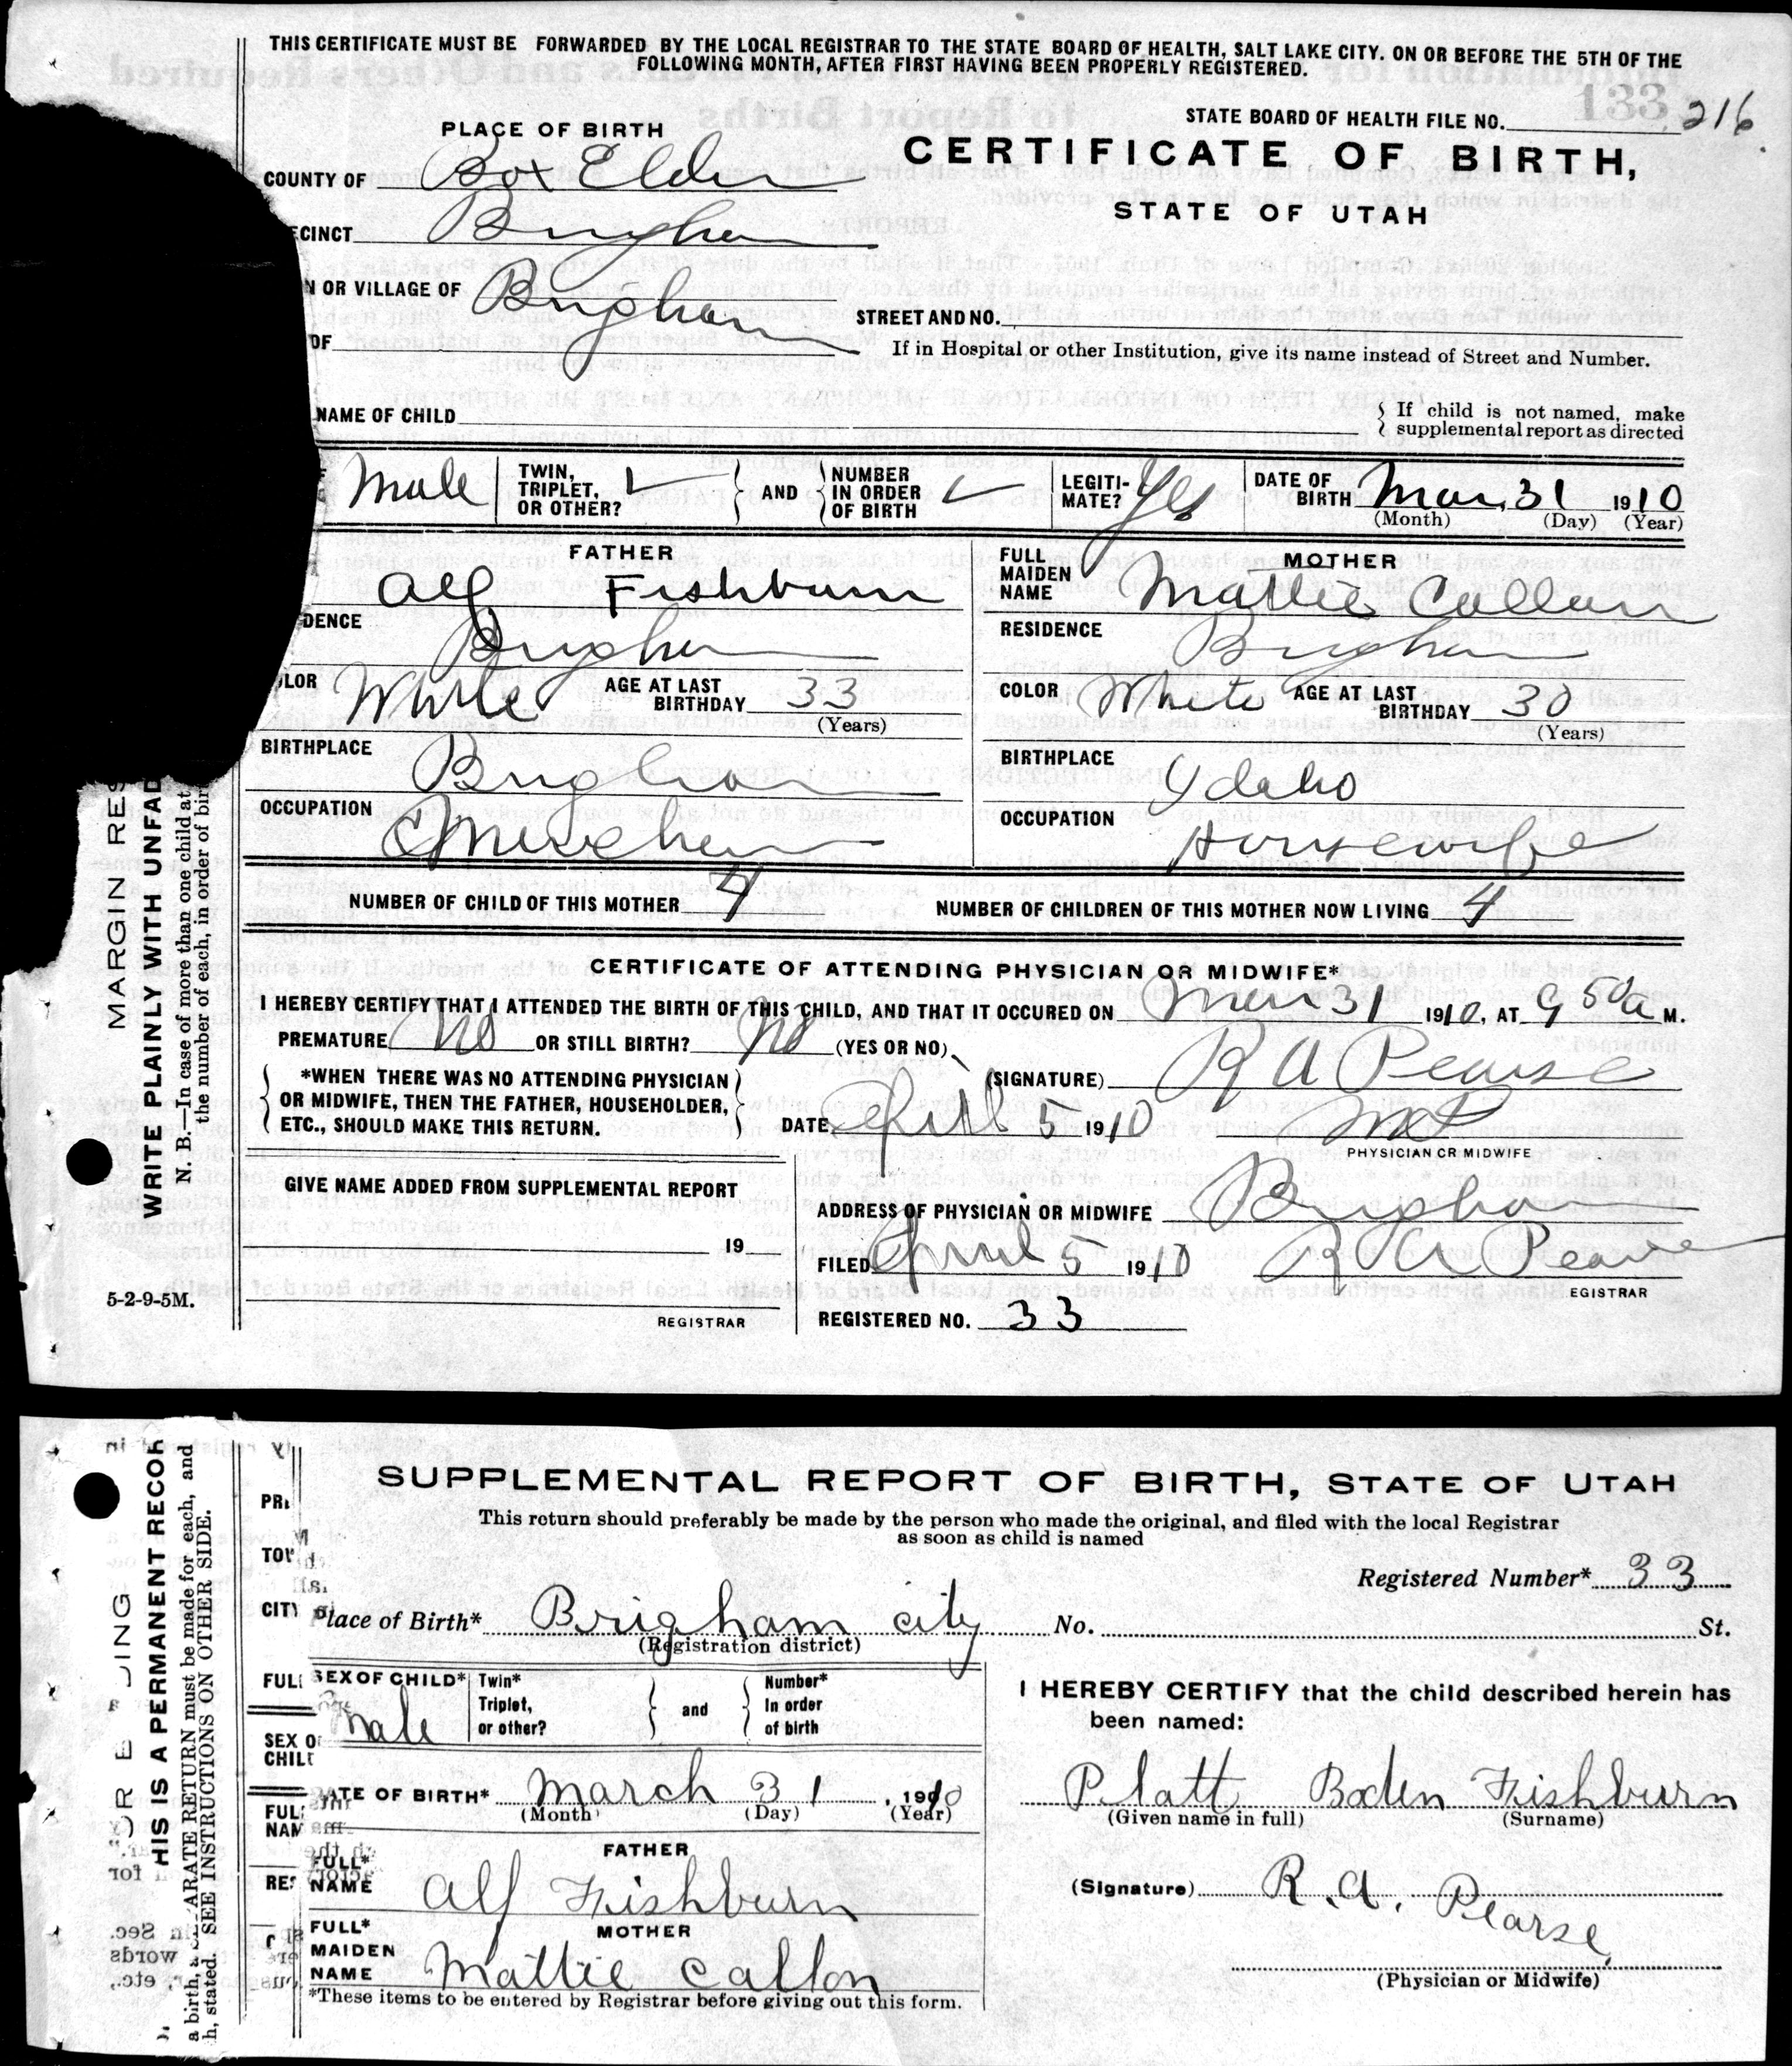 THIS CERTIFICATE MUST BE FORWARDED BY THE LOCAL REGISTRAR TO THE STATE BOARD OF HEALTH, SALT LAKE CITY. ON OR BEFORE THE 5TH OF THE
FOLLOWING MONTH, AFTER FIRST HAVING BEEN PROPERLY REGISTERED.
133
STATE BOARD OF HEALTH FILE NO. 216
PLACE OF BIRTH
CERTIFICATE OF BIRTH,
STATE OF UTAH
COUNTY OF Box Elder
CINCT Brigham
N OR VILLAGE OF Brigham
OF
STREET AND NO.
If in Hospital or other Institution, give its name instead of Street and Number.
NAME OF CHILD
If child is not named, make
supplemental report as directed
Male
TWIN, TRIPLET, OR OTHER?
AND
NUMBER IN ORDER OF BIRTH
LEGITI-MATE? Yes
DATE OF BIRTH Mar. 31 1910
(Month) (Day) (Year)
FATHER
Alf Fishburn
DENCE Brigham
LOR White AGE AT LAST BIRTHDAY 33
(Years)
BIRTHPLACE Brigham
OCCUPATION
FULL MAIDEN NAME
MOTHER
Mattie Callon
RESIDENCE Brigham
COLOR White AGE AT LAST BIRTHDAY 30
(Years)
BIRTHPLACE Idaho
OCCUPATION Housewife
NUMBER OF CHILD OF THIS MOTHER 4 NUMBER OF CHILDREN OF THIS MOTHER NOW LIVING 4
CERTIFICATE OF ATTENDING PHYSICIAN OR MIDWIFE*
I HEREBY CERTIFY THAT I ATTENDED THE BIRTH OF THIS CHILD, AND THAT IT OCCURED ON Mar 31 1910, AT 9 50 a M.
PREMATURE No OR STILL BIRTH? No (YES OR NO)
*WHEN THERE WAS NO ATTENDING PHYSICIAN
OR MIDWIFE, THEN THE FATHER, HOUSEHOLDER,
ETC., SHOULD MAKE THIS RETURN.
(SIGNATURE) R A Pearse
DATE April 5 1910 MD
PHYSICIAN OR MIDWIFE
GIVE NAME ADDED FROM SUPPLEMENTAL REPORT
19
REGISTRAR
ADDRESS OF PHYSICIAN OR MIDWIFE Brigham
FILED April 5 1910 R A Pearse
EGISTRAR
REGISTERED NO. 33
5-2-9-5M.
MARGIN RES
WRITE PLAINLY WITH UNFAD
N. B.—In case of more than one child at
the number of each, in order of birt
SUPPLEMENTAL REPORT OF BIRTH, STATE OF UTAH
This return should preferably be made by the person who made the original, and filed with the local Registrar
as soon as child is named
Registered Number* 33
Place of Birth* Brigham city No. St.
(Registration district)
SEX OF CHILD* male
Twin* Triplet, or other?
and
Number* In order of birth
ATE OF BIRTH* March 31, 1910
(Month) (Day) (Year)
FATHER
FULL* NAME Alf Fishburn
MOTHER
FULL* MAIDEN NAME Mattie Callon
*These items to be entered by Registrar before giving out this form.
I HEREBY CERTIFY that the child described herein has
been named:
Platt Boden Fishburn
(Given name in full) (Surname)
(Signature) R. A. Pearse,
(Physician or Midwife)
PR
TOW
CITY
FULL
SEX O
CHIL
FUL
NAM
RES
HIS IS A PERMANENT RECOR
ARATE RETURN must be made for each, and
h, stated. SEE INSTRUCTIONS ON OTHER SIDE.